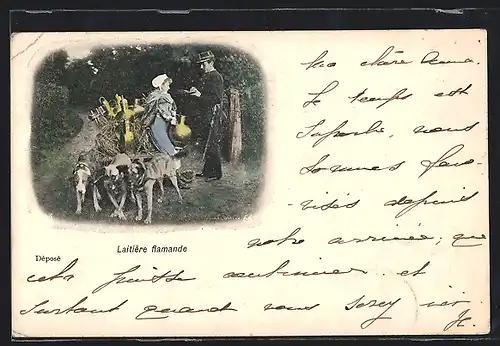 Ma chère Anna.
Le temps est
superbe, nous
sommes favo-
risés depuis
Laitière flamande
notre arrivée, que
Déposé
cela puisse continuer et
surtout quand vous serez ici